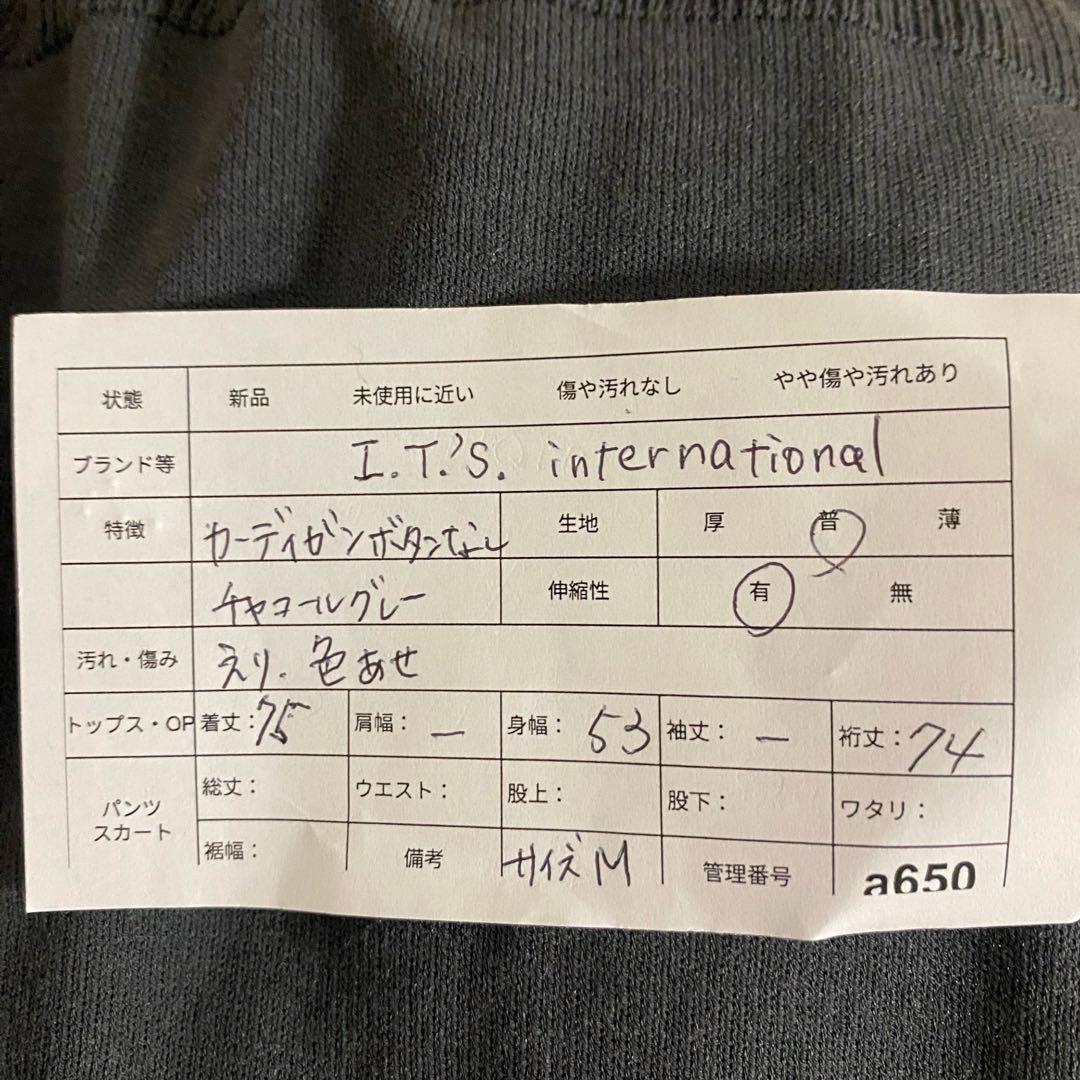 状態 新品 未使用に近い 傷や汚れなし やや傷や汚れあり
ブランド等 I.T.'S. international
特徴 カーディガンボタンなし 生地 厚 普 薄
チャコールグレー 伸縮性 有 無
汚れ・傷み えり、色あせ
トップス・OP 着丈:75 肩幅: — 身幅: 53 袖丈: — 裄丈:74
パンツ スカート 総丈: ウエスト: 股上: 股下: ワタリ:
裾幅: 備考 サイズM 管理番号 a650